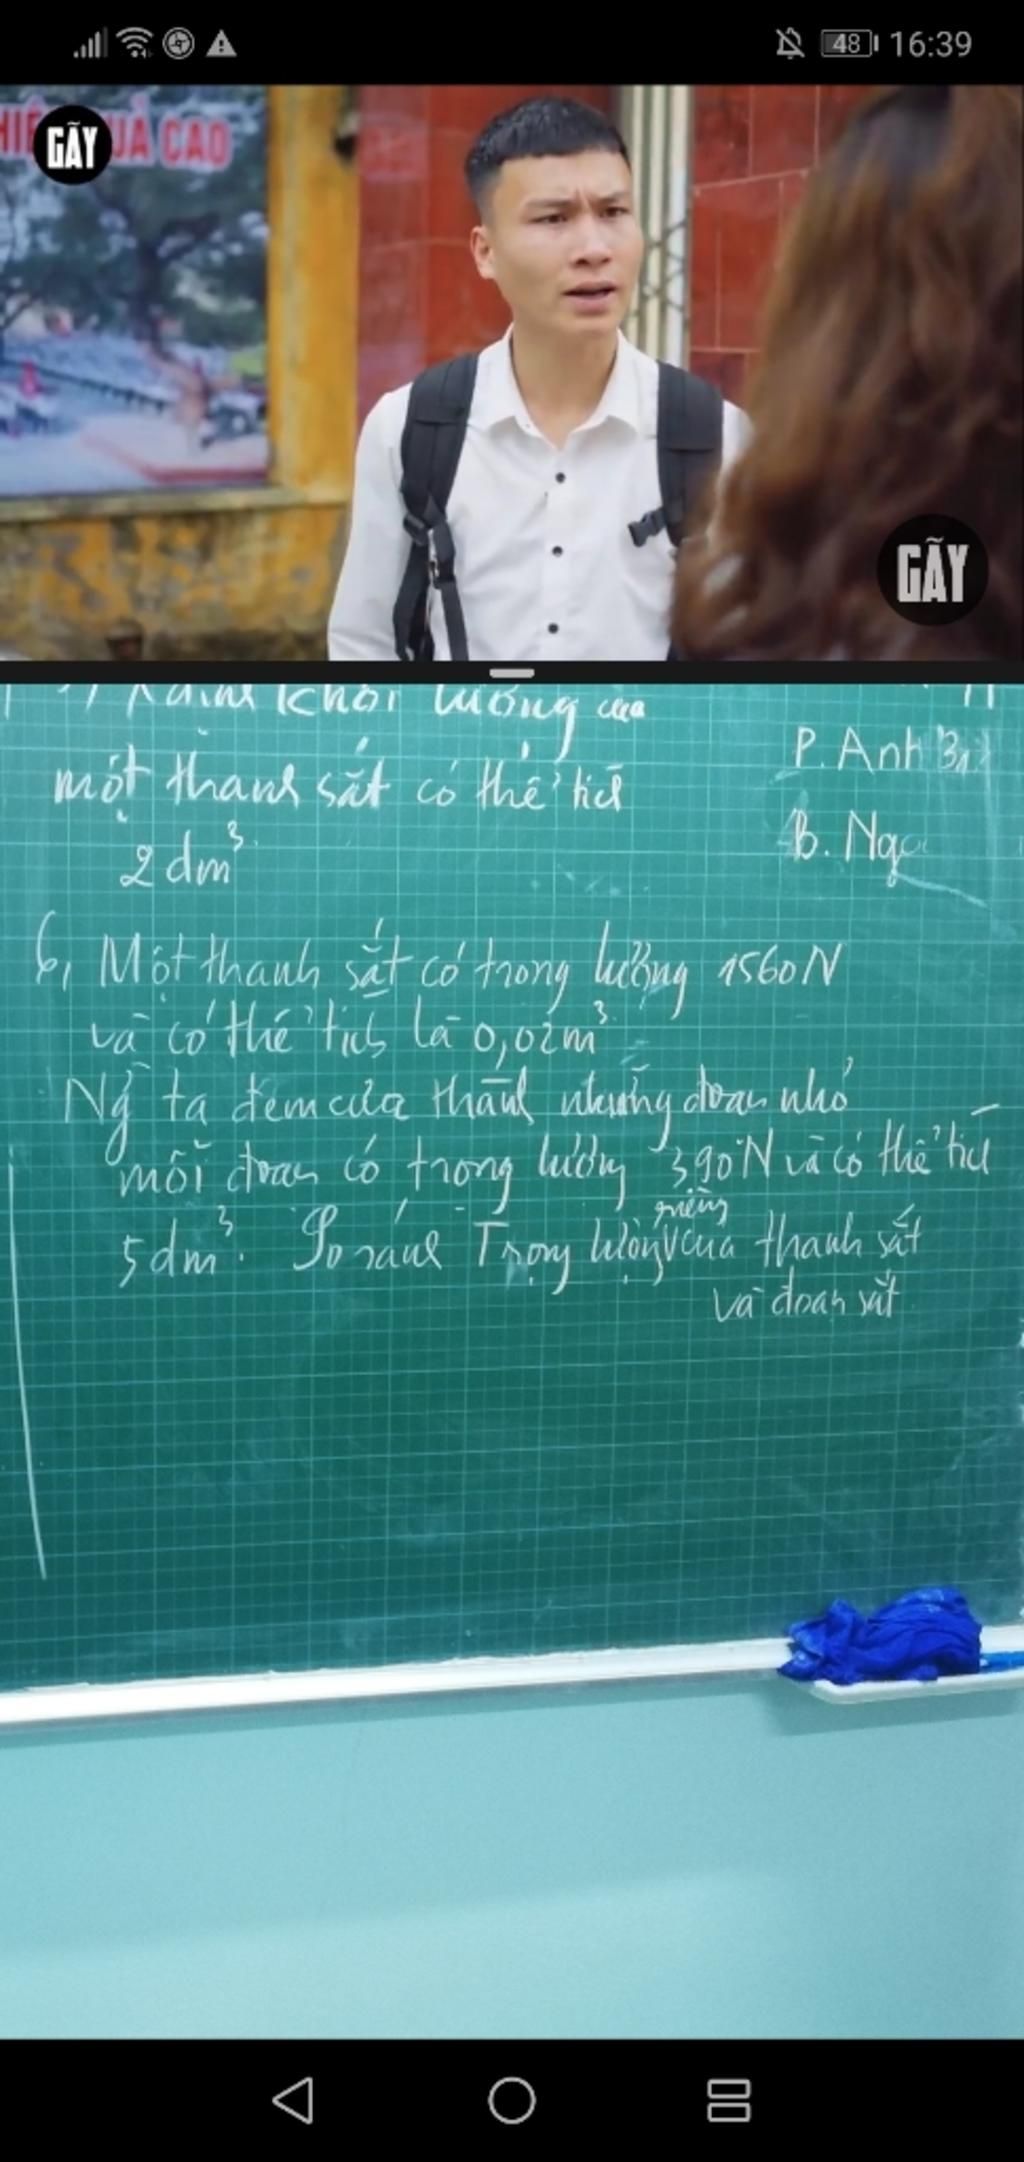 48 16:39
QUẢ CAO
GÃY
GÃY
khối lượng của
một thanh sắt có thể tích
2 dm³.
P. Anh
B. Ngọ
6, Một thanh sắt có trọng lượng 1560N
và có thể tích là 0,02m³.
Ng ta đem cưa thành những đoạn nhỏ
mỗi đoạn có trọng lượng 390N và có thể tích
5dm³. So sánh Trọng lượng riêng của thanh sắt
và đoạn sắt